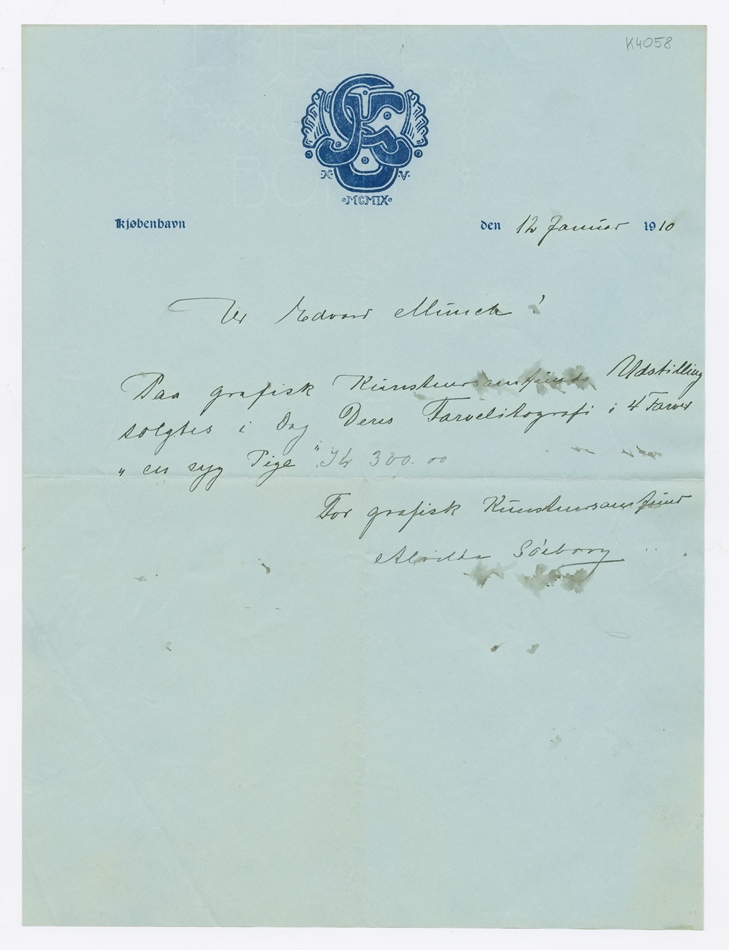 K4058
MCMIX
Kjøbenhavn den 12 Januar 1910
Hr Edvard Münch!
Paa grafisk Kunstnersamfunds Udstilling
solgtes i Dag Deres Farvelitografi i 4 Farver
„en syg Pige" 300.00
For grafisk Kunstnersamfund